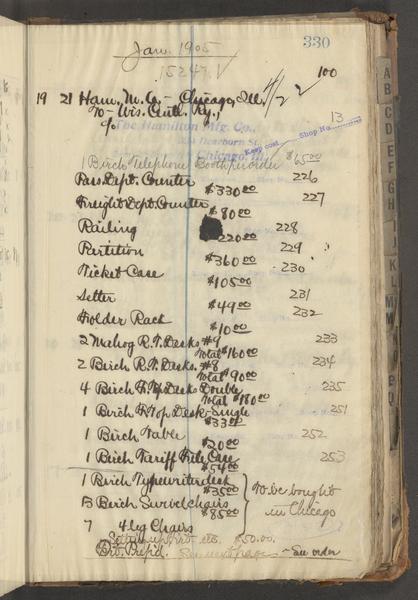 330
Jan. 1905
15247
100
19 21 Ham. M. Co. - Chicago, Ill.
To - Wis. Cent. Ry.
%
13
The Hamilton Mfg. Co.,
Dearborn St.
Chicago, Ill.
Keep cost Shop No.
1 Birch Telephone Booth per order $65.00
Pass. Dept. Counter 226
$330.00
Freight Dept. Counter 227
$80.00
Railing 228
220.00
Partition 229
$360.00
Ticket Case 230
$105.00
Setter 231
$49.00
Holder Rack 232
$10.00
2 Mahog R.T. Desks #9 233
Total $160.00
2 Birch R.T. Desks #8 234
Total $90.00
4 Birch Desks Double 235
Total $180.00
1 Birch Top Desk Single 251
$33.00
1 Birch Table 252
$20.00
1 Birch Tariff File Case 253
$54.00
1 Birch Typewriter desk
$35.00
13 Birch Swivel chairs
$85.00
7 4 leg Chairs
To be bought
in Chicago
Setting up etc. $50.00
Prep'd. See next page - See order
A
B
C
D
E
F
G
H
I
J
K
L
M